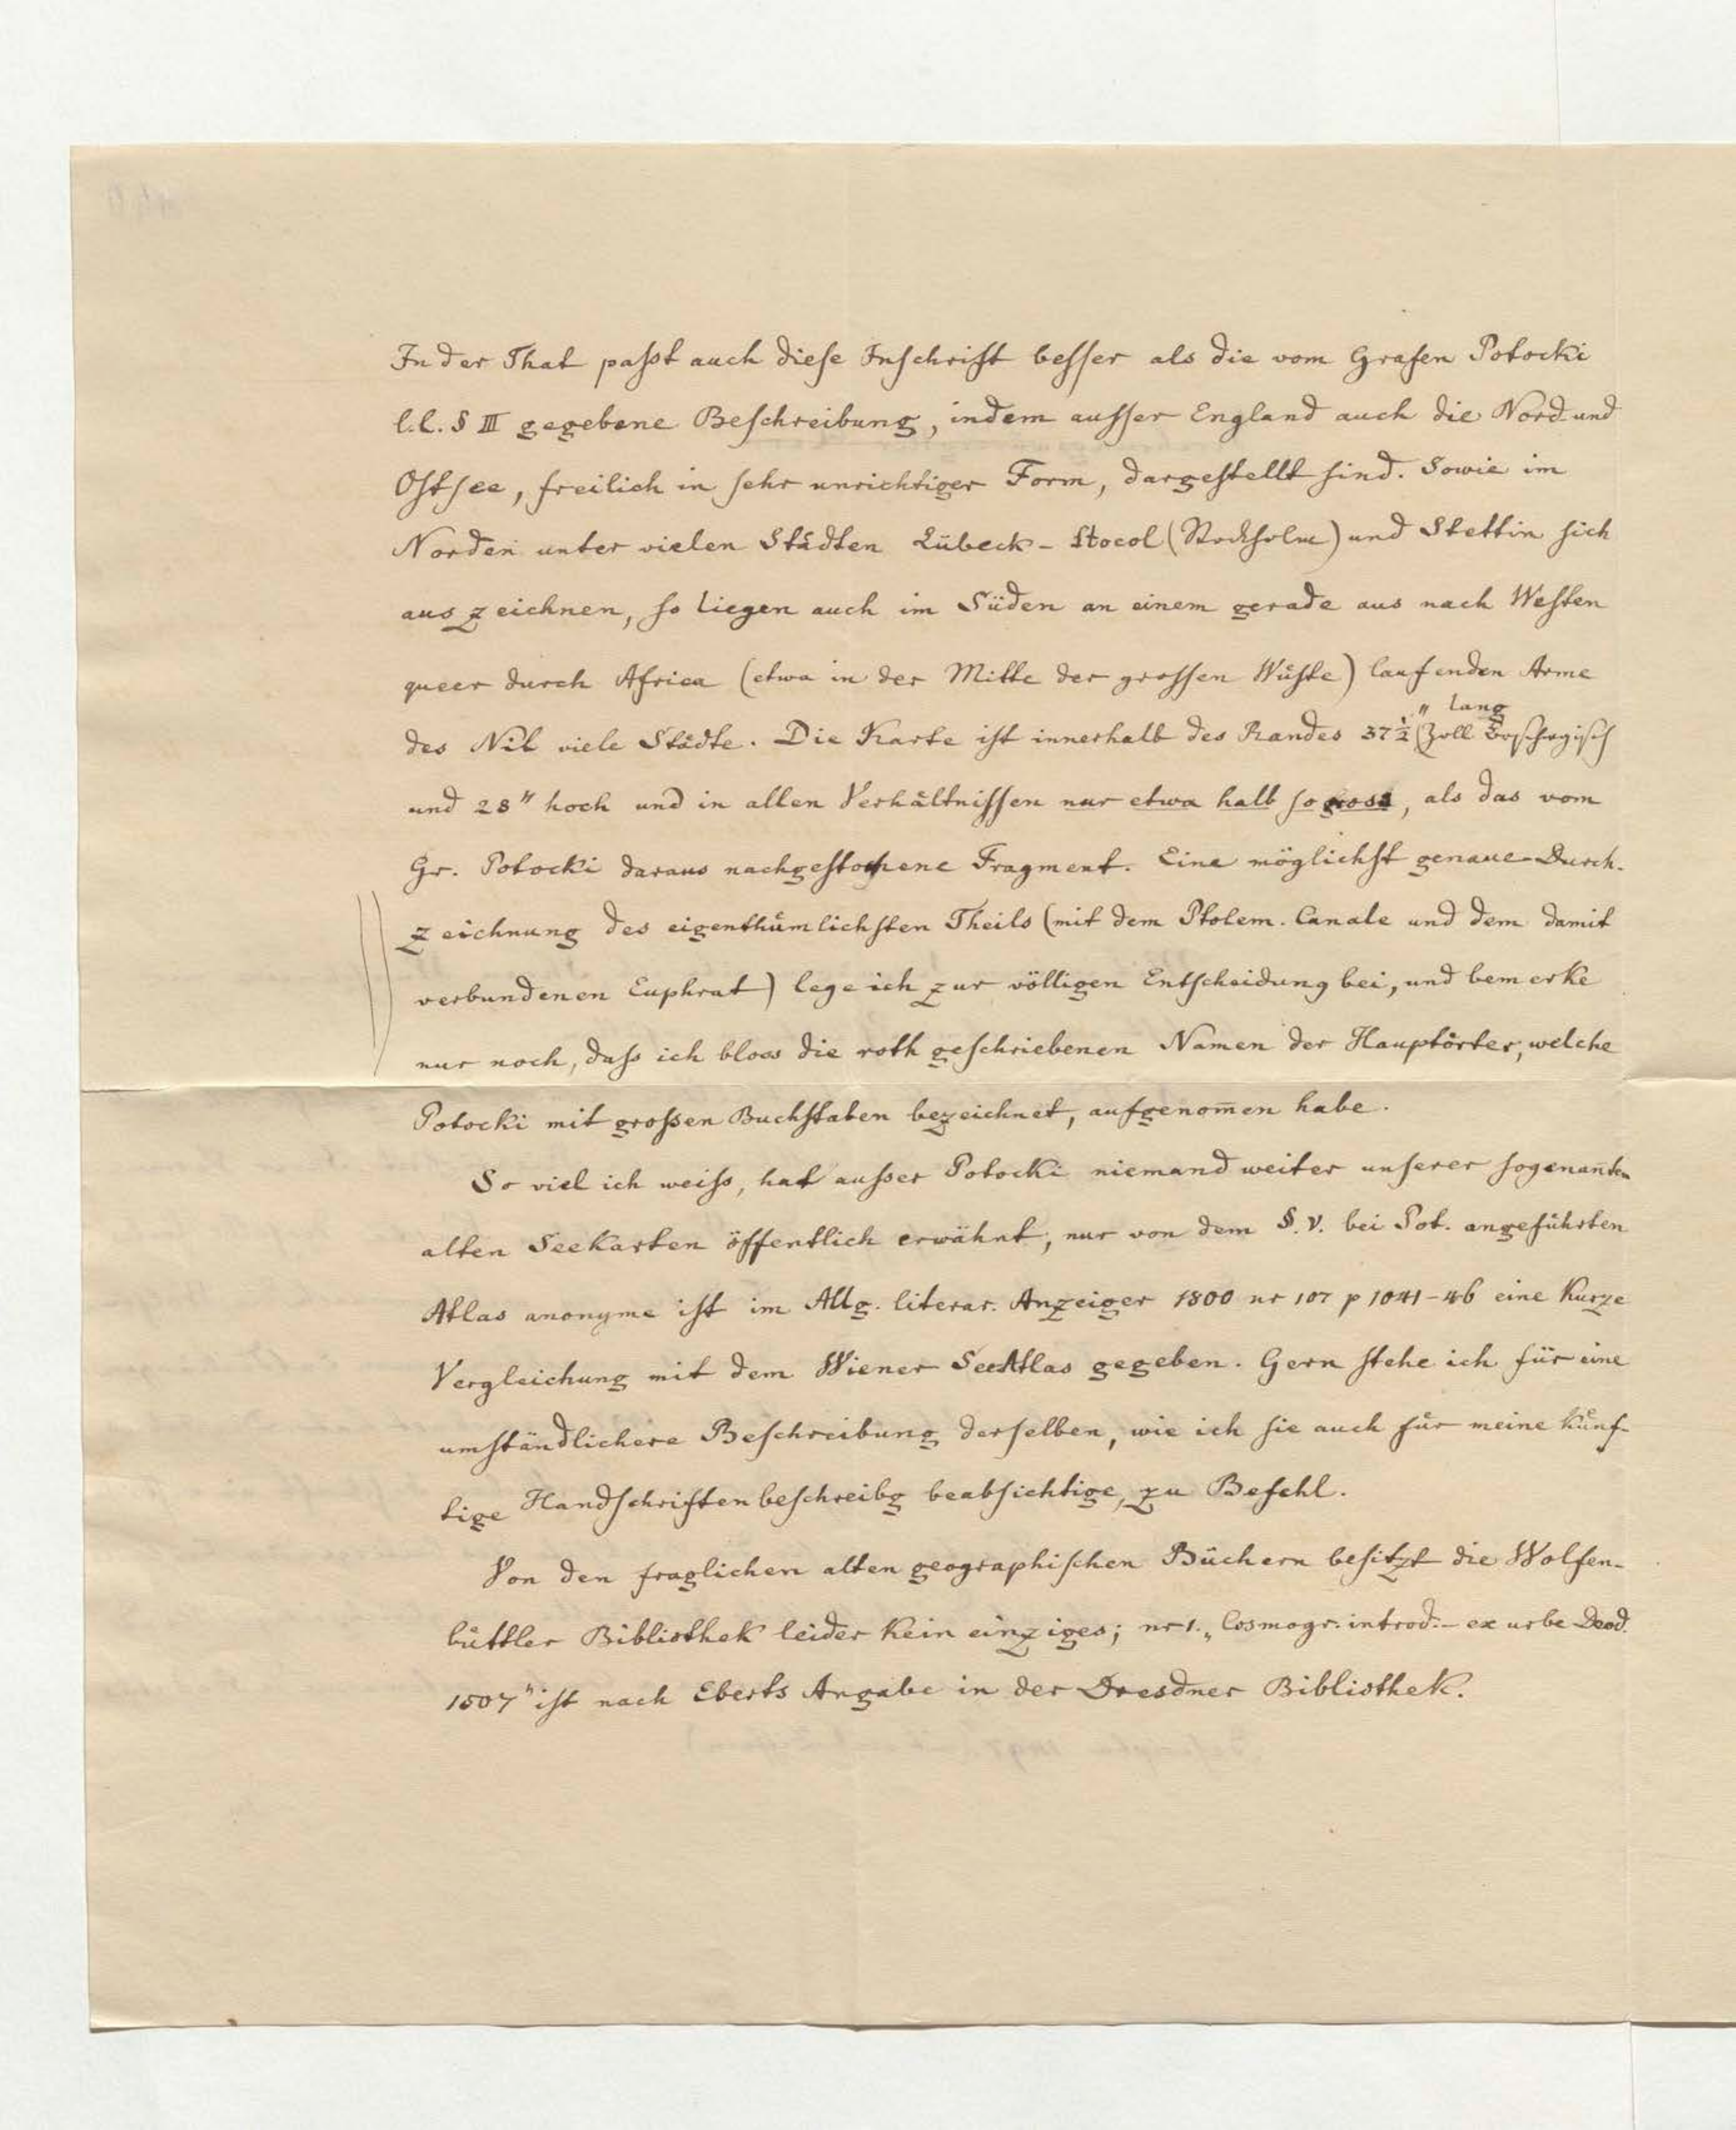 In der That paſst auch dieſe Inſchrift beſſer als die vom Grafen Potocki
l.l. § III gegebene Beſchreibung, indem auſſer England auch die Nord und
Oſtſee, freilich in ſehr unrichtiger Form, dargeſtellt ſind. Sowie im
Norden unter vielen Städten Lübeck - Stocol (Stockholm) und Stettin ſich
auszeichnen, ſo liegen auch im Süden an einem gerade aus nach Weſten
queer durch Africa (etwa in der Mitte der groſſen Wüſte) laufenden Arme
des Nil viele Städte. Die Karte iſt innerhalb des Randes 37 1/2" (Zoll lang
und 28" hoch und in allen Verhältniſſen nur etwa halb ſo gross, als das vom
Gr. Potocki daraus nachgeſtochene Fragment. Eine möglichſt genaue Durch-
zeichnung des eigenthümlichſten Theils (mit dem Ptolem. Canale und dem damit
verbundenen Euphrat) lege ich zur völligen Entſcheidung bei, und bemerke
nur noch, daſs ich bloss die roth geſchriebenen Namen der Hauptörter, welche
Potocki mit groſsen Buchſtaben bezeichnet, aufgenom̄en habe.
So viel ich weiſs, hat auſser Potocki niemand weiter unſerer ſogenan̄ten
alten Seekarten öffentlich erwähnt, nur von dem §. V. bei Pot. angeführten
Atlas anonyme iſt im Allg. literar. Anzeiger 1800 nr 107 p 1041-46 eine kurze
Vergleichung mit dem Wiener SeeAtlas gegeben. Gern ſtehe ich für eine
umſtändlichere Beſchreibung derſelben, wie ich ſie auch für meine künf-
tige Handſchriftenbeſchreibg beabſichtige, zu Befehl.
Von den fraglichen alten geographiſchen Büchern beſitzt die Wolfen-
büttler Bibliothek leider kein einziges; nr 1. „Cosmogr. introd. - ex urbe Deod.
1507" iſt nach Eberts Angabe in der Dresdner Bibliothek.